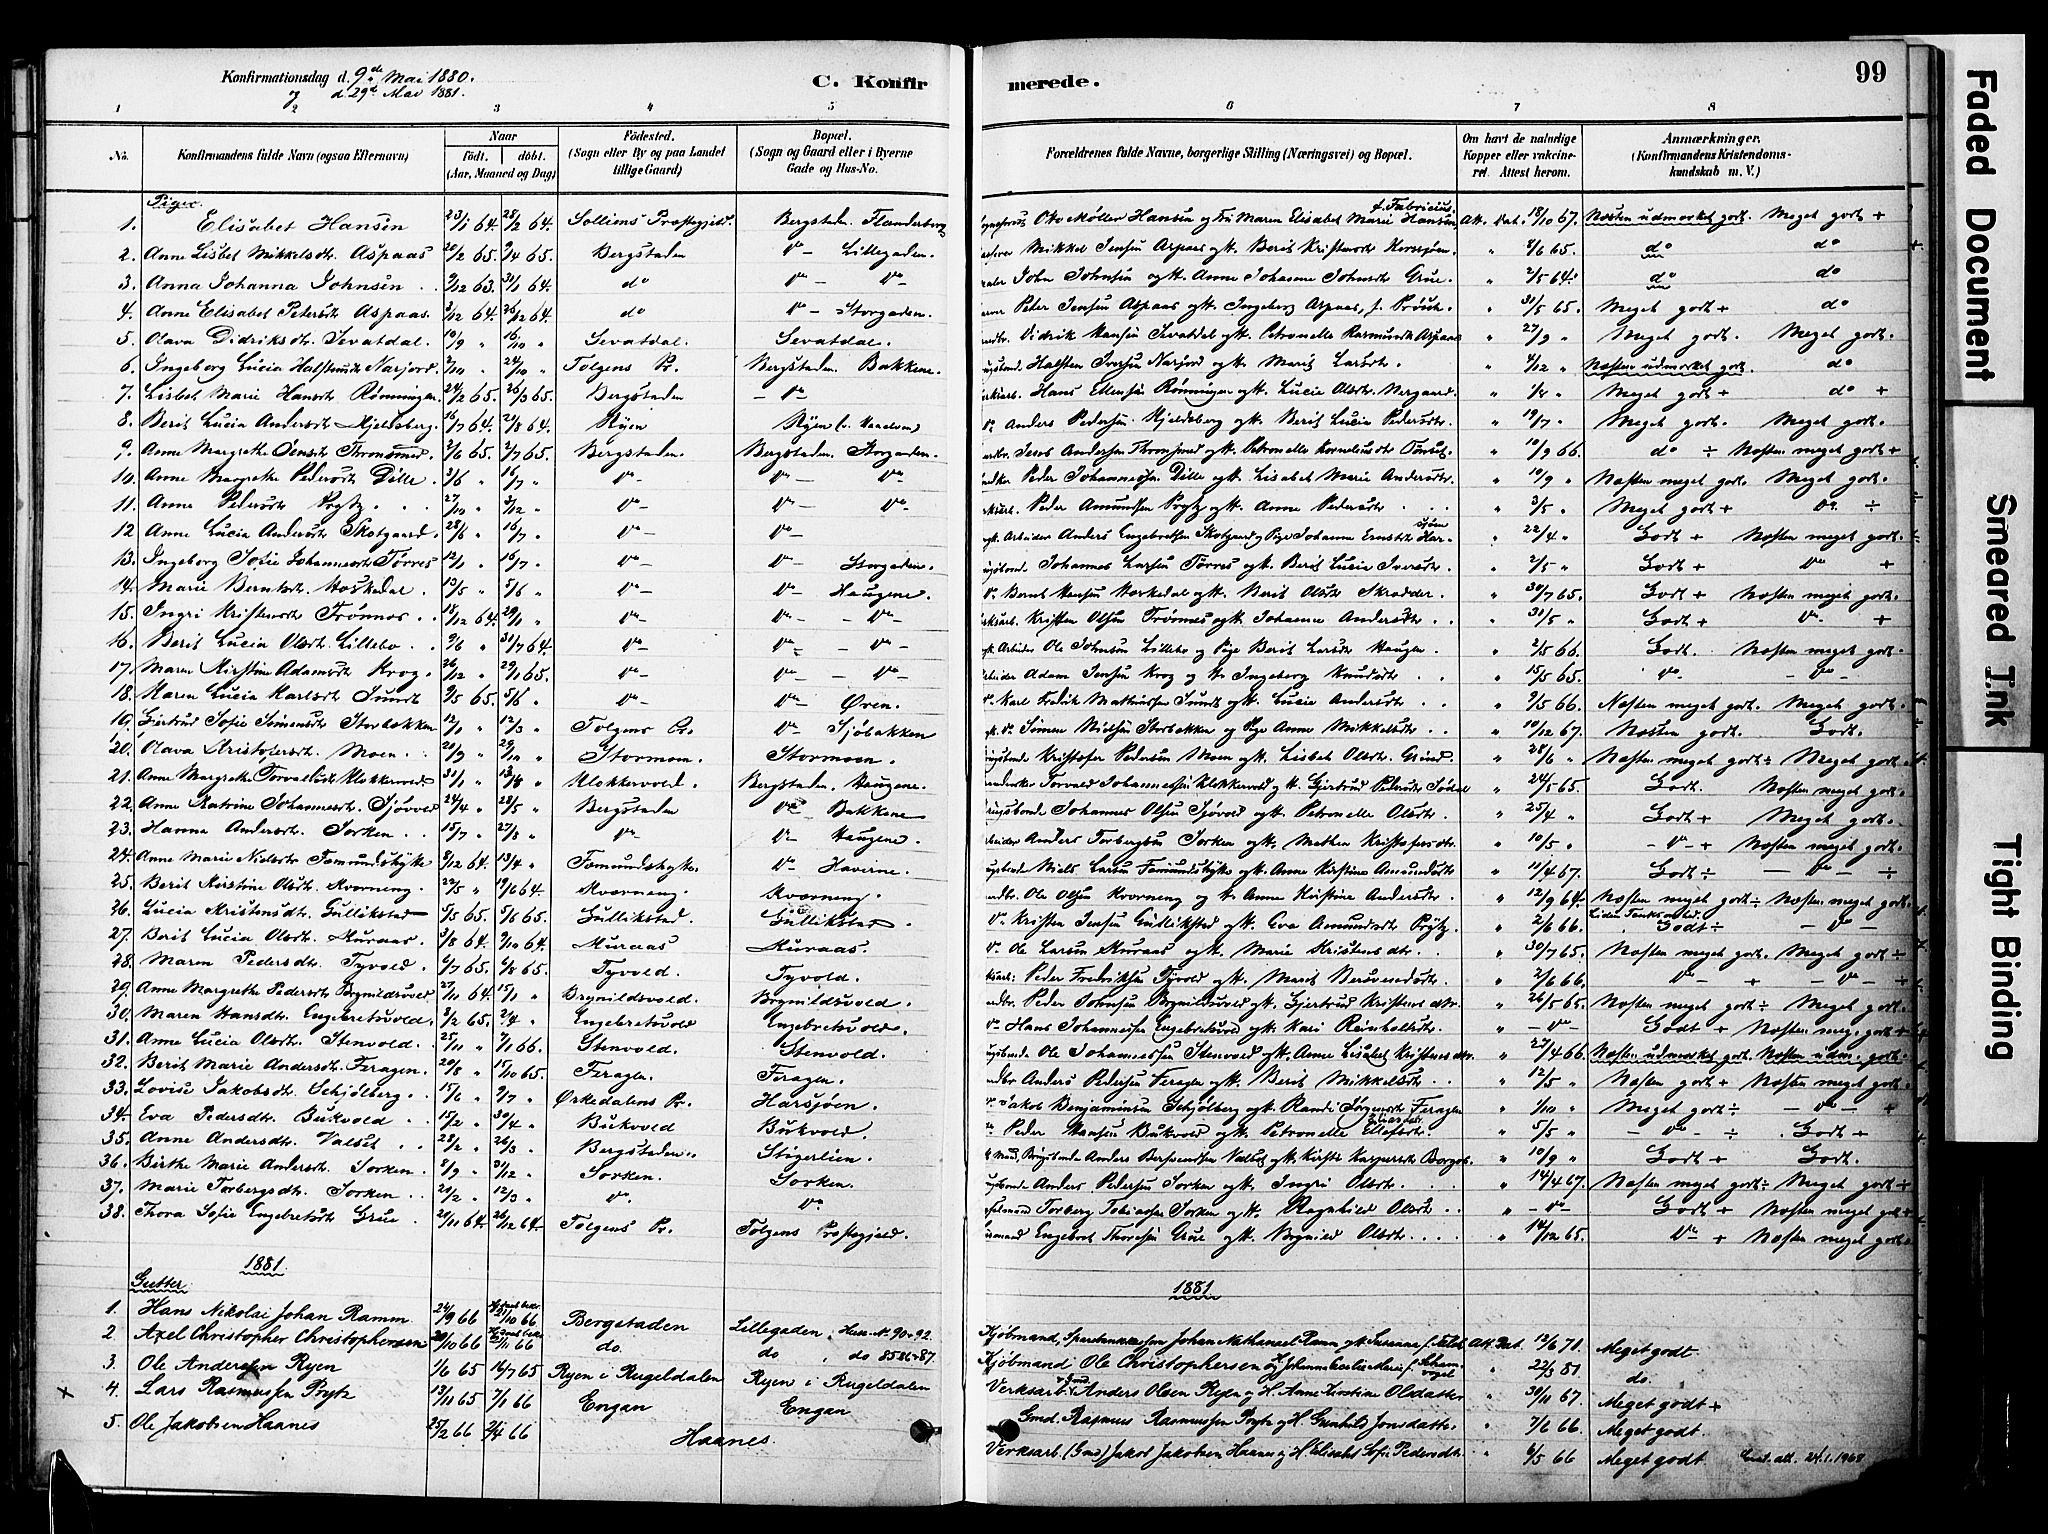 Konfirmationsdag d. 9de Mai 1880.
og d. 29de Mai 1881.
C. Konfir
merede.
99
1 2 3 4 5 6 7 8
No. Konfirmandens fulde Navn (ogsaa Efternavn) Naar födt. döbt. (Aar, Maaned og Dag) Födested. (Sogn eller By og paa Landet tillige Gaard) Bopæl. (Sogn og Gaard eller i Byerne Gade og Hus-No.) Forældrenes fulde Navne, borgerlige Stilling (Næringsvei) og Bopæl. Om havt de naturlige Kopper eller vakcineret. Attest herom. Anmærkninger. (Konfirmandens Kristendomskundskab m. V.)
Piger
1. Elisabet Hansen 23/1 64. 28/2 64. Sollims Præstegjeld. Bergstaden Flanderborg Otto Møller Hansen og Fru Maren Elisabet Marie Hansen f. Fabricius. Att. Dat. 18/10 67. Næsten udmærket godt. Meget godt +
2. Anne Lisbet Mikkelsdtr. Aspaas 20/2 65. 9/4 65. Bergstaden Do — Lillegaden. Mikkel Jensen Aspaas og H. Berit Kristensdtr. Korssjøen. " 2/6 65. do do
3. Anna Johanna Johnsen 9/12 63. 31/1 64. do Do — Do — John Johnsen og H. Anne Johanne Johnsdtr. Grue " 2/5 64. do do
4. Anne Elisabet Petersdtr. Aspaas. 3/12 64. 26/12 64. do Do — Storgaden. Peter Jensen Aspaas og H. Ingeborg Aspaas, f. Prøsch. " 31/5 65. Meget godt + do
5. Olava Didriksdtr. Sevatdal. 10/9 " 16/10 " Sevatdal Sevatdal. Didrik Hansen Sevatdal og H. Petronelle Rasmusdtr. Aspaas " 27/9 " Meget godt. Meget godt.
6. Ingeborg Lucia Halstensdtr. Narjord. 2/10 " 24/10 " Tolgens Pr. Bergstaden Bakkene. Halsten Iversen Narjord og H. Marit Larsdtr. " 4/12 " Næsten udmærket godt. do
7. Lisbet Marie Hansdtr. Rønningen 24/2 65. 26/3 65. Bergstaden — Do — Hans Ellensen Rønningen og H. Lucie Olsdtr. " Meget godt + do +
8. Berit Lucia Andersdtr. Hjelsberg. 16/7 64. 24/8 64. Ryen Ryen Anders Pedersen Hjeldsberg og H. Berit Lucia Pedersdtr. " 19/7 " Meget godt. Meget godt.
9. Anne Margrethe Jensdtr. Thronsmed. 2/6 65. 2/7 65. Bergstaden Bergstaden, Storgaden. Andersen Thronsmed og H. Petronelle Korneliusdtr. Tønset. " 10/9 66. do ÷ Næsten meget godt +
10. Anne Margrethe Pedersdtr. Dille. 3/6 " 16/7 " Do — Do — Do — Peder Johannessen Dille og H. Lisabet Marie Andersdtr. " 10/9 " Næsten meget godt. Meget godt.
11. Anne Pedersdtr. Prytz. 27/10 " 3/12 " Do — Do — Do — Peder Amundsen Prytz og H. Anne Pedersdtr. " 3/5 " Meget godt + Do ÷
12. Anne Lucia Andersdtr. Skotgaard. 28/6 " 16/7 " Do — Do — Arbeider Anders Engebretsen Skotgaard og Pige Johanne Ernstdtr. Harsjøen " 22/4 " Godt + Næsten meget godt.
13. Ingeborg Sofie Johannesdtr. Tørres 12/1 " 16/7 " Do — Do — Storgaden. Johannes Larsen Tørres og H. Berit Lucie Iversdtr. " 2/5 " Godt + Do +
14. Marie Berntsdtr. Hoskedal 13/5 " 5/6 " Do — Do — Haugene. Do Bernt Hansen Hoskedal og H. Berit Olsdtr. Skrødder. " 30/7 65. Godt + Næsten meget godt.
15. Ingri Kristensdtr. Trønnes 18/12 64. 29/1 " Do — Do — — Do — Kristen Olsen Trønnes og H. Johanne Andersdtr. " 31/5 " Godt + Do +
16. Berit Lucia Olsdtr. Lillebo. 9/6 " 31/7 64. Do — Do — — Do — Arbeider Ole Johnsen Lillebo og Pige Berit Larsdtr. Haugen " 2/5 66. Godt. Næsten meget godt.
17. Maren Kirstine Adamsdtr. Krog. 26/12 " 29/1 65. Do — Do — — Do — Adam Jensen Krog og H. Ingeborg Knudsdtr. " 15/5 65. Do — Do —
18. Maren Lucia Karlsdtr. Sundt 9/5 65. 5/6 " Do — Do — Øren. Do Karl Fredrik Mathiassen Sundt og H. Lucie Andersdtr. " 9/5 66. Næsten meget godt. Meget godt.
19. Gjertrud Sofie Simensdtr. Storbækken 12/1 " 12/3 " Tolgens Pr. Do Sjøbakken Do Simen Nielsen Storbækken og Pige Anne Mikkelsdtr. " 10/12 67. Næsten godt. Godt.
20. Olava Kristofersdtr. Moen. 20/9 " 29/10 " Stormoen. Stormoen. Kristofer Pedersen Moen og H. Lisbet Olsdtr. Grind " 28/6 " Næsten meget godt ÷ Meget godt.
21. Anne Margrethe Torvaldsdtr. Klokkervold. 31/1 " 13/8 " Klokkervold. Bergstaden, Haugene. Torvald Johannessen Klokkervold og H. Gjertrud Pedersdtr. " 24/5 65. Godt. Næsten meget godt.
22. Anne Katrine Johannesdtr. Sjøvold 24/4 " 28/5 " Bergstaden Do Bakkene Johannes Olsen Sjøvold og H. Petronelle Olsdtr. " 25/4 " Godt + Meget godt.
23. Hanna Andersdtr. Sorken 15/7 " 27/8 " Do — Do Haugene. Anders Torbergsen Sorken og H. Mathea Kristofersdtr. " 10/5 " — Do — + Næsten meget godt.
24. Anne Marie Nielsdtr. Fæmundshytte 8/12 64. 13/4 " Fæmundshytte. Do Havirne. Niels Larsen Fæmundshytte og H. Anne Kirstine Amundsdtr. " 11/4 67. Godt ÷ — Do — ÷
25. Berit Kirstine Olsdtr. Kværneng. 22/5 " 19/6 64. Kværneng. Kværneng. Ole Olsen Kværneng og H. Anne Kirstine Andersdtr. " 12/9 64. Næsten meget godt ÷ Næsten meget godt
26. Lucia Kristensdtr. Gullikstad 5/5 65. 5/6 65. Gullikstad. Gullikstad. Do Kristen Jensen Gullikstad og H. Eva Amundsdtr. Prytz. " 2/6 66. Godt ÷ — Do —
27. Berit Lucia Olsdtr. Muraas. 3/8 64. 9/10 64. Muraas Muraas. Do Ole Larsen Muraas og H. Marie Kristensdtr. " 30/7 65. Næsten meget godt. Meget godt ÷
28. Maren Pedersdtr. Tyvold. 6/7 65. 6/8 65. Tyvold. Tyvold. Peder Fredriksen Tyvold og H. Marit Bersvensdtr. " 2/6 66. Do + — Do — +
29. Anne Margrethe Pedersdtr. Brynildsvold. 27/11 64. 15/1 " Brynildsvold. Brynildsvold. Peder Johnsen Brynildsvold og H. Gjertrud Kristensdtr. " 26/5 65. Næsten meget godt ÷ Meget godt.
30. Maren Hansdtr. Engebretsvold. 3/2 65. 2/4 " Engebretsvold Engebretsvold. Do Hans Johannessen Engebretsvold og H. Kari Reinholtsdtr. " — Do — Godt + Næsten meg. godt +
31. Anne Lucia Olsdtr. Stenvold. 25/11 " 7/1 66. Stenvold. Stenvold. Ole Johannessen Stenvold og H. Anne Lisabet Kristensdtr. " 27/4 66. Næsten udmærket godt. Næsten udm. godt.
32. Berit Marie Andersdtr. Feragen. 20/8 " 15/10 65. Feragen. Feragen. Anders Pedersen Feragen og H. Berit Mikkelsdtr. " 12/5 " Næsten godt + Næsten meget godt
33. Lovise Jakobsdtr. Schjølberg. 15/6 " 9/7 " Ørkedalens Pr. Harsjøen. Jakob Benjaminsen Schjølberg og H. Randi Jørgensdtr. Feragen " 1/10 " Meget godt ÷ — Do — +
34. Eva Pedersdtr. Bukvold. 15/2 " 30/4 " Bukvold Bukvold. Peder Hansen Bukvold og H. Petronelle Ellefsdtr. " 5/5 " — Do — ÷ Godt +
35. Anne Andersdtr. Valset 28/2 " 26/3 " Bergstaden. Stigerlien. Anders Bersvendsen Valset og H. Kirsti Kaspersdtr. Borgos. " 10/9 " Godt + Godt.
36. Birthe Marie Andersdtr. Sorken. 8/9 " 31/12 " Sorken. Sorken. Anders Pedersen Sorken og H. Ingri Olsdtr. " 14/4 67. Næsten meget godt ÷ Meget godt ÷
37. Marie Torbergsdtr. Sorken 20/2 " 12/3 " Do Do Torberg Tobiassen Sorken og H. Ragnhild Olsdtr. " — Do — Godt + Næsten meget godt +
38. Thora Sofie Engebretsdtr. Grue 20/11 64. 26/12 64. Tolgens Pr. Tolgens Præstegjeld. Engebret Thoresen Grue og H. Brynild Olsdtr. " 14/12 65. Do + Næsten meget godt.
1881.
1881
Gutter
1. Hans Nikolai Johan Ramm 24/9 66 21/10 66 Bergstaden Lillegaden, Hus-Nr. 90 & 92. Kjøbmand, Johan Nathanael Ramm og H. Susanne f. Att. Dat. 12/6 71. Meget godt
2. Axel Christopher Christophersen 20/10 66 2/11 66 do. do , do 85 86 & 87. Kjøbmand Ole Christophersen og Johanne Cecilie Marie f. " 22/3 81 do.
3. Ole Andersen Ryen 1/6 65 16/7 65 Ryen i Rugeldalen Ryen i Rugeldalen Verksarb. Anders Olsen Ryen og H. Anne Kirstine Olsdatter " 30/11 67. Meget godt +
x 4. Lars Rasmussen Prytz 13/11 65 7/1 66 Engan Engan Gmd. Rasmus Rasmussen Prytz og H. Gunhild Jonsdatter " 7/6 66. Meget godt.
5. Ole Jakobsen Haanes 25/2 66 2/4 66 Haanes. Verksarb. (Gmd) Jakob Jakobsen Haanes og H. Elisabet Sofie Pedersdtr. " 6/5 66 Meget godt att. 24/1 1968
Faded Document
Smeared Ink
Tight Binding